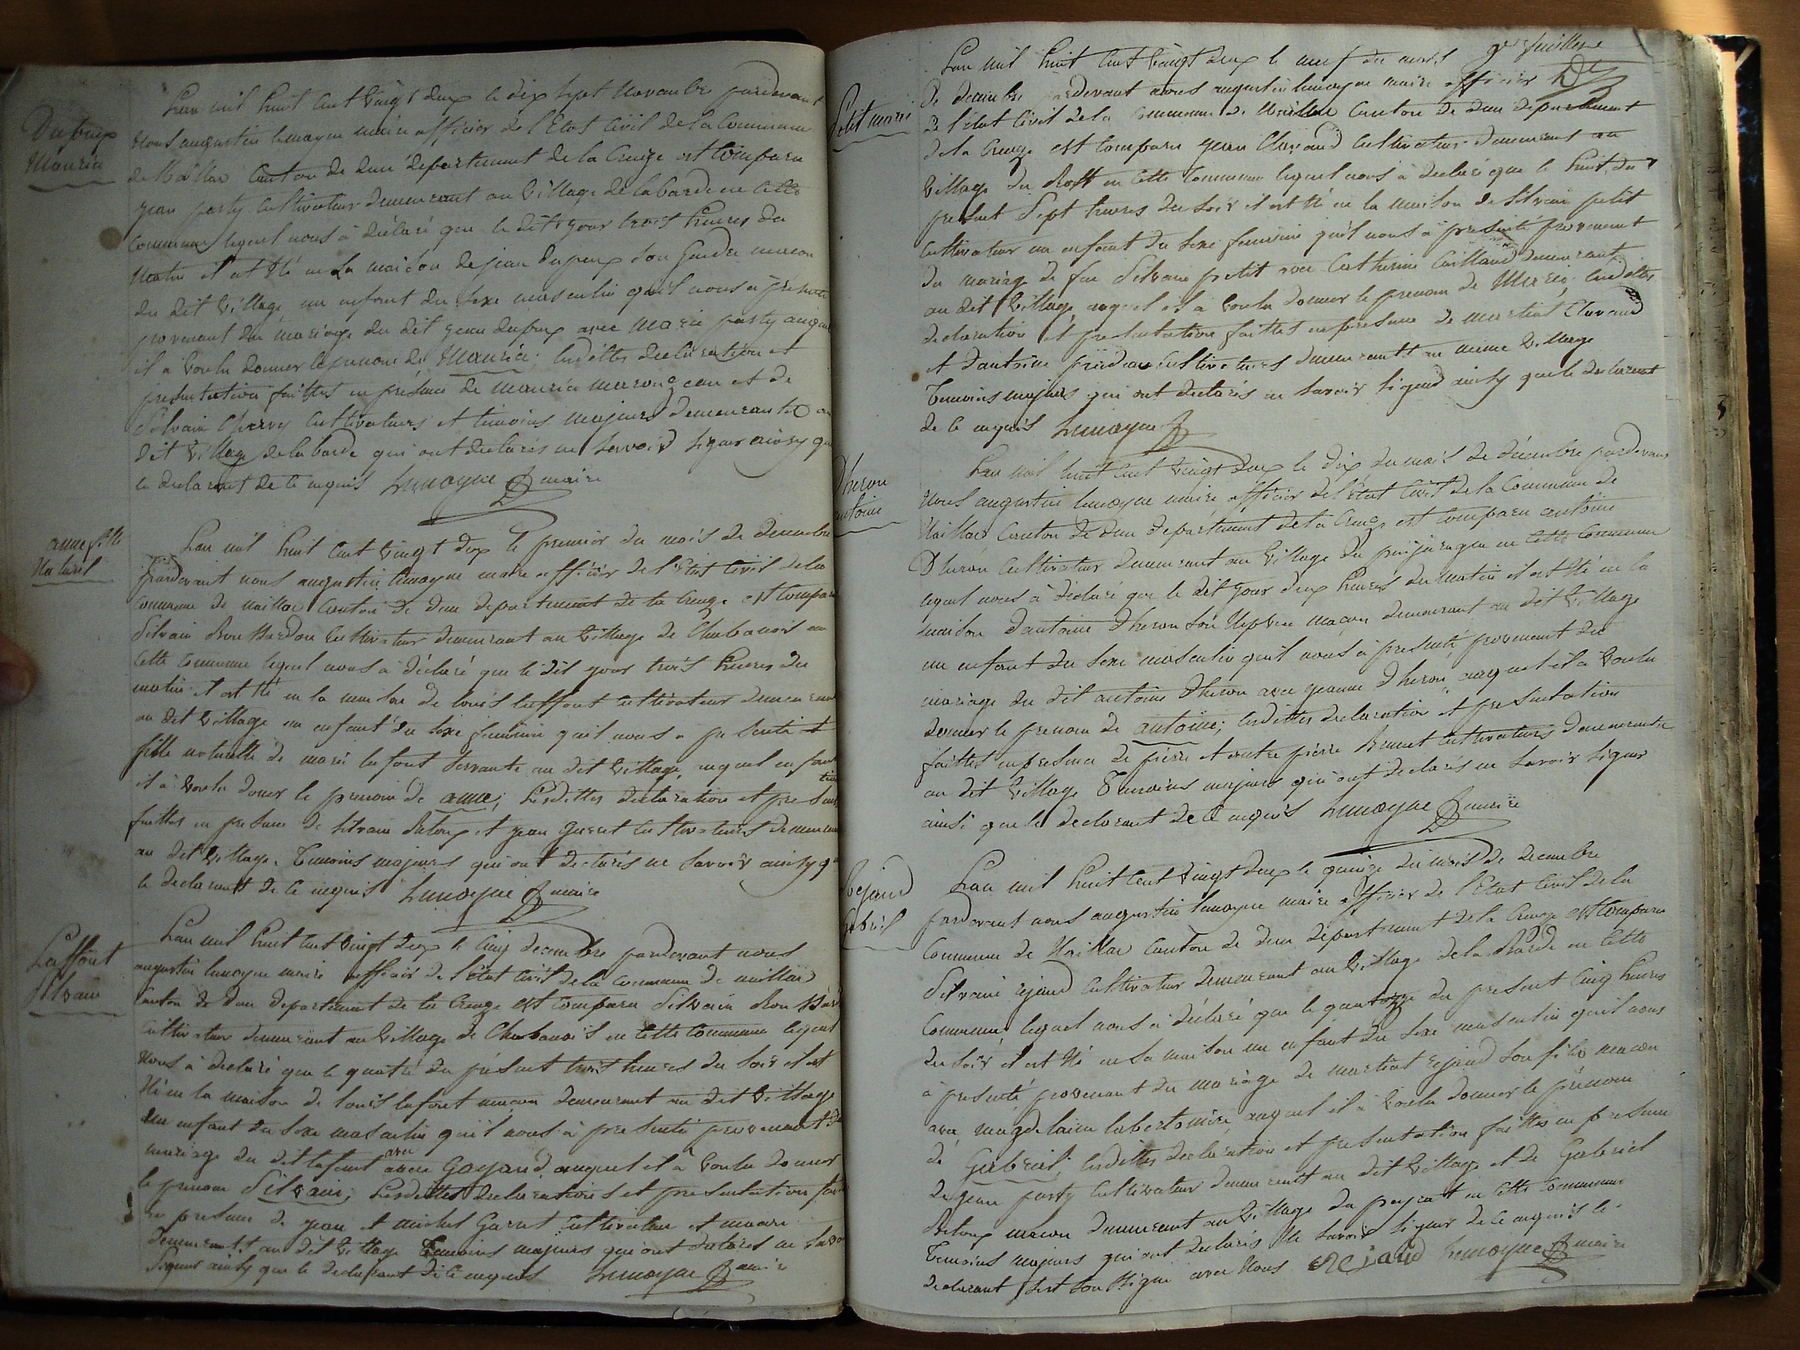 Dupeux
Mauricie
L'an mil huit cent vingt deux le dix sept Novembre pardevant
Nous augustin lemoyne maire officier de l'Etat Civil de la Commune
de Naillac Canton de dun département de la Creuze est Comparu
jean party Cultivateur demeurant au Village de labarde en Cette
Commune lequel nous à déclaré que le dit jour trois heures du
matin il est Né en La maison de jean dupeux son Gendre macon
du dit Village un enfant du sexe masculin qu'il nous a présenté
provenant du mariage du dit jean dupeux avec marie party auquel
il à Voulu donner le prenom de Mauricie; lesdittes declaration et
presentation faittes en présence de mauricie et de
Silvain Cultivateurs et temoins majeurs demeurants au
dit Village de labarde qui ont declarés ne Savoir signer ainsy que
le declarant de Ce enquis Lemoyne maire
anne fille
Naturel
L'an mil huit Cent Vingt deux le premier du mois de decembre
pardevant nous augustin lemoyne maire officier de l'Etat Civil de la
Commune de naillac Canton de dun departement de la Creuze est Comparu
Silvain Cultivateur demeurant au Village de Chabanois en
Cette Commune lequel nous à déclaré que le dit jour trois heures du
matin il est Né en la maison de louis laffont Cultivateur demeurant
au dit Village un enfant du sexe feminin qu'il nous a presenté et
fille naturelle de marie lafont Servante au dit Village, auquel enfant
il à Voulu doner le prenom de anne; Lesdittes declaration et presentation
faittes en presence de Silvain et jean Garret Cultivateurs demeurant
au dit Village. Temoins majeurs qui ont declarés ne Savoir ainsy que
le declarant de Ce enquis Lemoyne maire
Laffont
Silvain
L'an mil huit Cent Vingt deux le Cinq decembre pardevant nous
augustin lemoyne maire officier de l'Etat Civil de la Commune de naillac
Canton de dun departement de la Creuze est Comparu Silvain
Cultivateur demeurant au Village de Chabanois en Cette Commune lequel
Nous à declaré que le quatre du présent trois heures du Soir il est
Né en la maison de louis lafont macon demeurant au dit Village
un enfant du sexe masculin qu'il nous à presenté provenant du
mariage du dit lafont avec auquel il a Voulu donner
le prenom Silvain; Lesdittes declarations et presentation faittes
en presence de jean et michel Garret Cultivateur et macon
demeurant au dit Village Temoins majeurs qui ont declarés ne Savoir
Signer ainsy que le declarant de Ce enquis Lemoyne maire
Petit marie
L'an mil huit Cent Vingt deux le neuf du mois
De decembre pardevant nous augustin lemoyne maire officier
de l'état Civil de la Commune de Naillac Canton de dun departement
de la Creuze est Comparu jean Cultivateur demeurant au
Village du en Cette Commune lequel nous à declaré que le huit du
present Sept heures du Soir il est Né en la maison de Silvain petit
Cultivateur un enfant du sexe feminin qu'il nous à presenté provenant
du mariage de feu Silvain petit avec Catherine demeurante
au dit Village auquel il à Voulu donner le prenom de Marie. Lesdittes
declaration et presentation faittes en presence de martial
et d'antoine Cultivateurs demeurantts au même Village
Temoins majeurs qui ont declarés ne Savoir Signer ainsy que le declarant
de Ce enquis Lemoyne
Dheron
antoine
L'an mil huit Cent Vingt deux le dix du mois de décembre pardevant
Nous augustin lemoyne maire officier de l'Etat Civil de la Commune de
Naillac Canton de dun departement de la Creuze est Comparu antoine
Dheron Cultivateur demeurant au Village du en Cette Commune
lequel nous à declaré que le dit jour deux heures du matin il est Né en la
maison d'antoine Dheron Son Neveu macon demeurant au dit Village
un enfant du sexe masculin qu'il nous à presenté provenant du
mariage du dit antoine Dheron avec jeanne Dheron auquel il à Voulu
donner le prenom de antoine; lesdittes declaration et presentation
faittes en presence de pierre et autre pierre Cultivateurs demeurants
au dit Village Temoins majeurs qui ont declarés ne Savoir Signer
ainsi que le declarant de Ce enquis Lemoyne maire
Rejaud
Gabriel
L'an mil huit Cent Vingt deux le quinze du mois de decembre
pardevant nous augustin lemoyne maire officier de l'Etat Civil de la
Commune de Naillac Canton de dun département de la Creuze est Comparu
Silvain rejaud Cultivateur demeurant au Village de la Barde en Cette
Commune lequel nous à déclaré que le quatorze du present Cinq heures
du Soir il est Né en Sa maison un enfant du Sexe masculin qu'il nous
à presenté provenant du mariage de martial rejaud Son fils macon
avec magdelaine auquel il à Voulu donner le prénom
de Gabriel; lesdittes declaration et presentation faittes en presence
de jean party Cultivateur demeurant au dit Village et de Gabriel
macon demeurant au Village du en Cette Commune
Temoins majeurs qui ont declarés Ne Savoir Signer de Ce enquis le
declarant s'est Soussigné avec Nous Rejaud Lemoyne maire